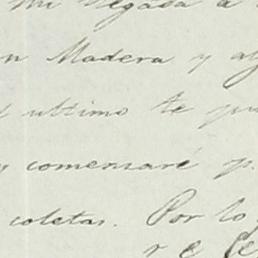 mi llegada a
n Madera y a
ultimo te pu
y comensaré p
coletas. Por lo